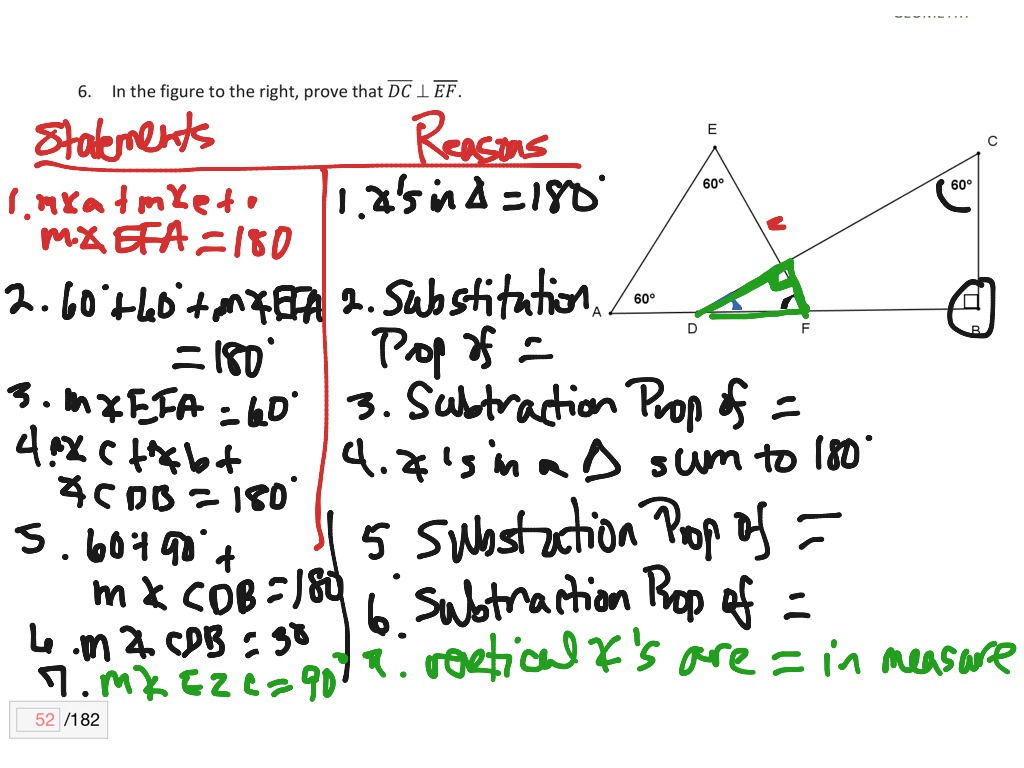 6. In the figure to the right, prove that DC ⊥ EF.
Statements
Reasons
1. m∡a + m∡e +
m∡EFA = 180
1. ∡'s in Δ = 180°
2. 60° + 60° + m∡EFA
= 180°
2. Substitution
Prop of =
3. m∡EFA = 60°
3. Subtraction Prop of =
4. m∡c + ∡b +
∡CDB = 180°
4. ∡'s in a Δ sum to 180°
5. 60 + 90° +
m∡CDB = 180
5 Substution Prop of =
6. m∡CDB = 30
6. Subtraction Prop of =
7. m∡EZC = 90°
7. vertical ∡'s are = in measure
E
60°
C
60°
Z
A
60°
D
F
B
52 /182